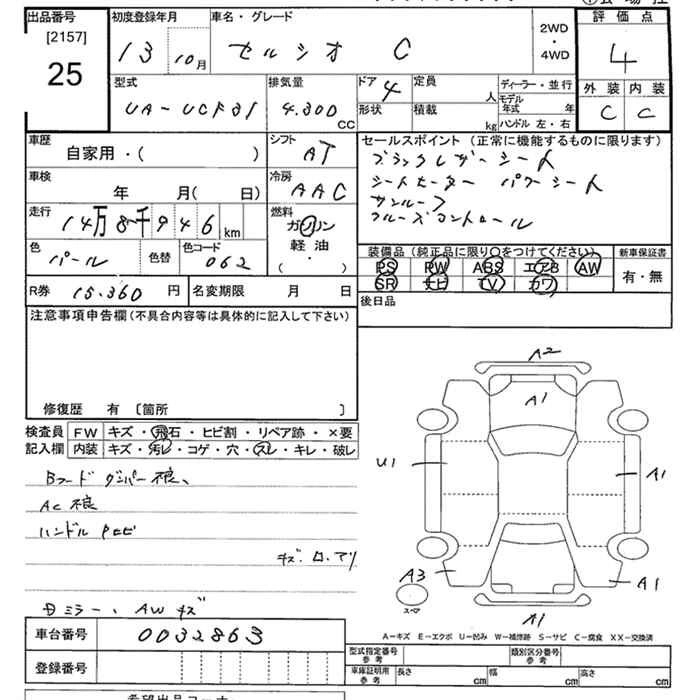 出品番号 初度登録年月 車名・グレード 評価点
[2157]
25 13 10月 セルシオ C 2WD・4WD 4
型式 排気量 ドア 定員 ディーラー・並行 外装 内装
UA-UCF31 4.300 CC 4 人 モデル年式 年 C C
形状 積載 kg ハンドル 左・右
車歴 シフト セールスポイント (正常に機能するものに限ります)
自家用・( ) AT ブラックレザーシート
車検 冷房 シートヒーター パワーシート
年 月( 日) AAC サンルーフ
走行 燃料 クルーズコントロール
14万8千946 km ガソリン
軽油・
( ・ )
色 色替 色コード 装備品 (純正品に限り○をつけてください) 新車保証書
パール 062 PS PW ABS エアB AW 有・無
R券 15.360 円 名変期限 月 日 SR ナビ TV カワ
後日品
注意事項申告欄(不具合内容等は具体的に記入して下さい)
修復歴 有 〔箇所 〕
検査員 FW キズ・飛石・ヒビ割・リペア跡・×要
記入欄 内装 キズ・汚レ・コゲ・穴・スレ・キレ・破レ
Bフード ダンパー不良、
AC 不良
ハンドル
キズ.
ミラー、AWキズ
A2
A1
U1 A1
A3 A1
スペア
A1
A-キズ E-エクボ U-凹み W-補修跡 S-サビ C-腐食 XX-交換済
車台番号 0032863
登録番号
型式指定番号 参考 類別区分番号 参考
車庫証明用 参考 長さ cm 幅 cm 高さ cm
希望出品コーナー